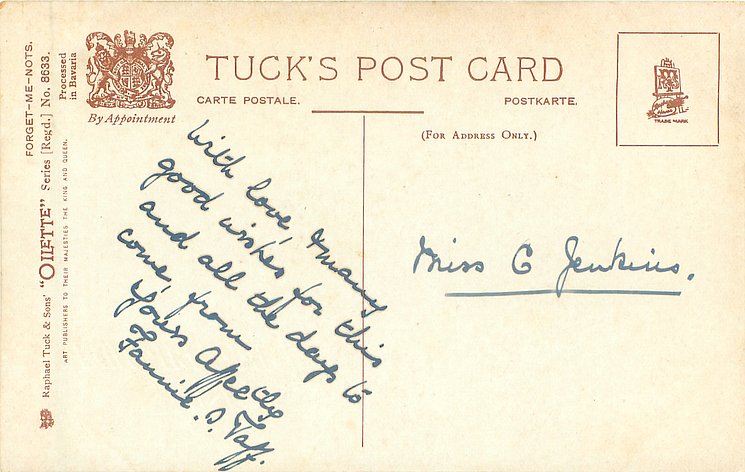 FORGET-ME-NOTS.
Raphael Tuck & Sons' "OILETTE" Series [Regd.] No. 8633.
ART PUBLISHERS TO THEIR MAJESTIES THE KING AND QUEEN.
Processed
in Bavaria
By Appointment
TUCK'S POST CARD
CARTE POSTALE.
POSTKARTE.
(For Address Only.)
TRADE MARK
With love, & many
good wishes for this
and all the days to
come, from
Yours affectly
Fannie. S. Taff.
Miss C Jenkins.